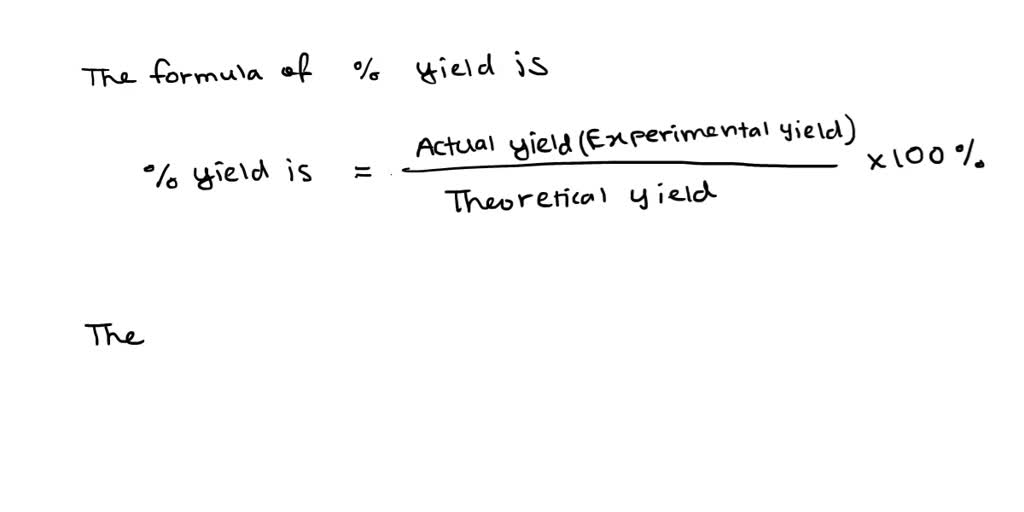 The formula of % yield is
% yield is = Actual yield (Experimental yield) / Theoretical yield × 100 %
The